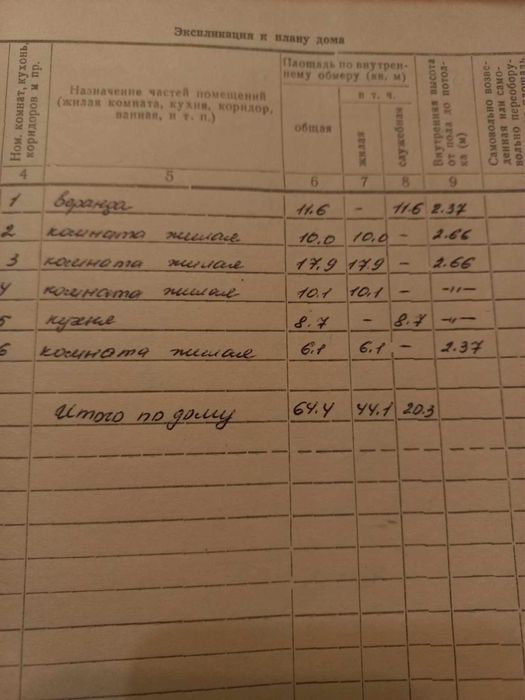 Экспликация к плану дома
Ном. комнат, кухонь, коридоров и пр.
Назначение частей помещений
(жилая комната, кухня, коридор,
ванная, и т. п.)
Площадь по внутрен-
нему обмеру (кв. м)
общая
в т. ч.
жилая
служебная
Внутренняя высота от пола до потол-ка (м)
Самовольно возве-денная или само-вольно переобору-
4 5 6 7 8 9
1 веранда 11.6 - 11.6 2.37
2 комната жилая 10.0 10.0 - 2.66
3 комната жилая 17.9 17.9 - 2.66
4 комната жилая 10.1 10.1 - -"-
5 кухня 8.7 - 8.7 -"-
6 комната жилая 6.1 6.1 - 2.37
Итого по дому 64.4 44.1 20.3